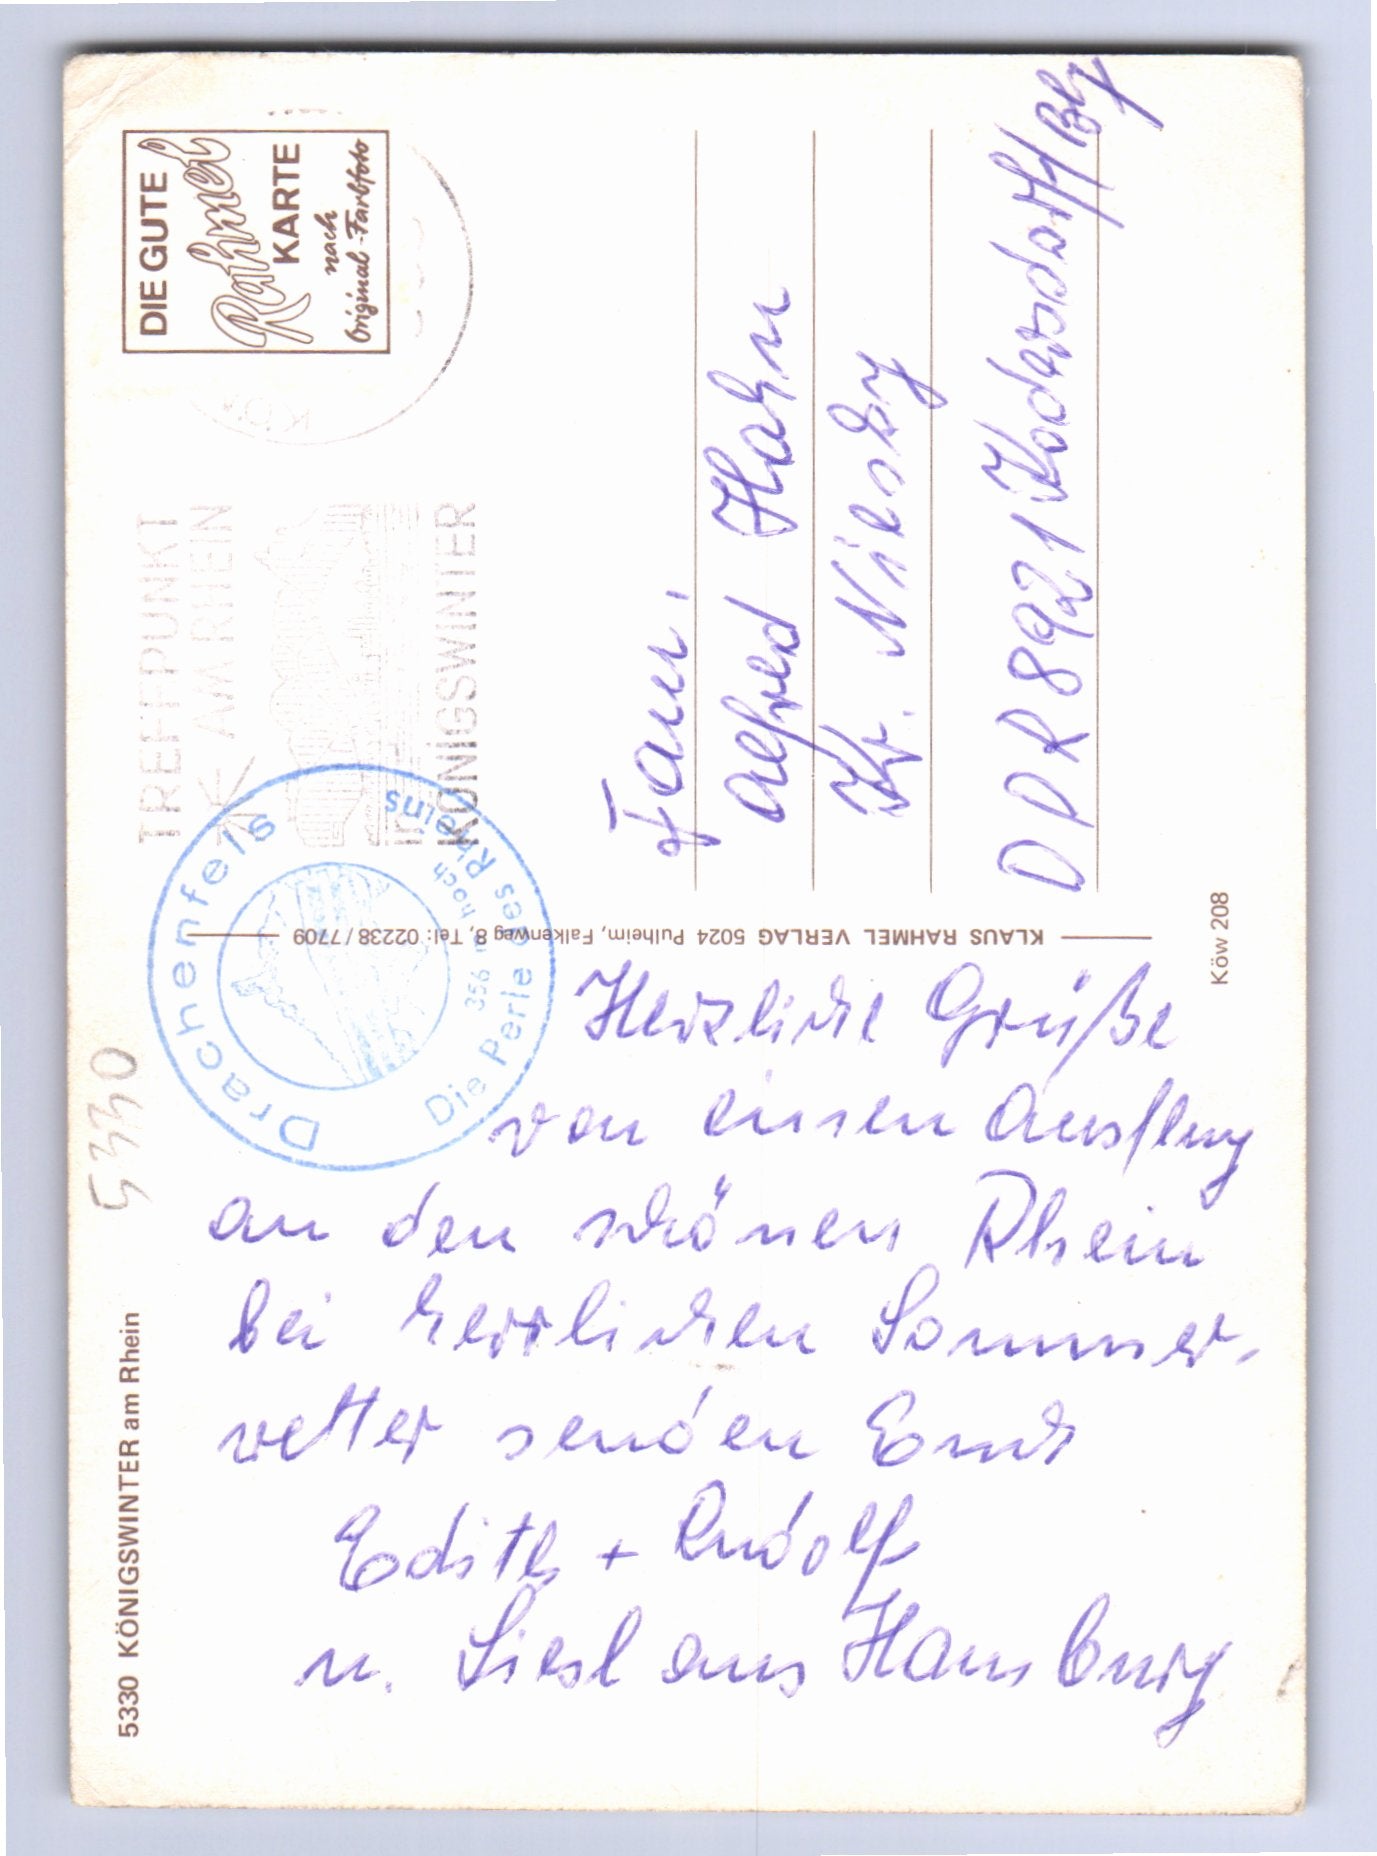 5330 KÖNIGSWINTER am Rhein
5330
DIE GUTE
Rahmel
KARTE
nach
Original-Farbfoto
TREFFPUNKT
AM RHEIN
KÖNIGSWINTER
Drachenfels
356 m hoch
Die Perle des Rheins
KLAUS RAHMEL VERLAG 5024 Pulheim, Falkenweg 8, Tel: 02238/7709
Köw 208
Fam.
Alfred Hahn
Kr. Niesky
DDR 8921 Kodersdorf/Bhf
Herzliche Grüße
von einen Ausflug
an den schönen Rhein
bei herrlichen Sommer-
wetter senden Euch
Edith + Rudolf
u. Liesl aus Hamburg